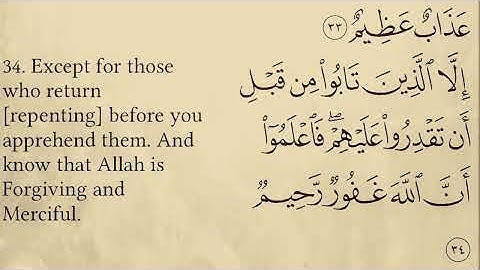 عَذَابٌ عَظِيمٌ ٣٣
إِلَّا ٱلَّذِينَ تَابُوا۟ مِن قَبْلِ
أَن تَقْدِرُوا۟ عَلَيْهِمْ ۖ فَٱعْلَمُوٓا۟
أَنَّ ٱللَّهَ غَفُورٌ رَّحِيمٌ
٣٤
34. Except for those
who return
[repenting] before you
apprehend them. And
know that Allah is
Forgiving and
Merciful.